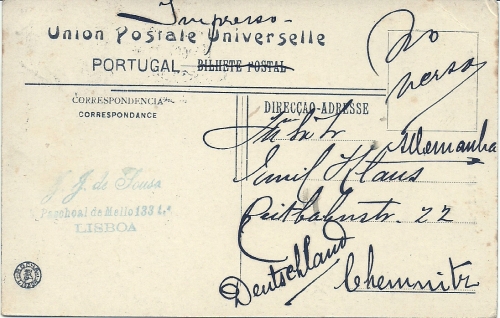 Impresso
Union Postale Universelle
PORTUGAL BILHETE POSTAL
No
verso
CORRESPONDENCIA
CORRESPONDANCE
DIRECÇÃO-ADRESSE
Allemanha
Emil Klaus
22
Deutschland
Chemnitz
J. J. de Sousa
Paschoal de Mello 133 1.º
LISBOA